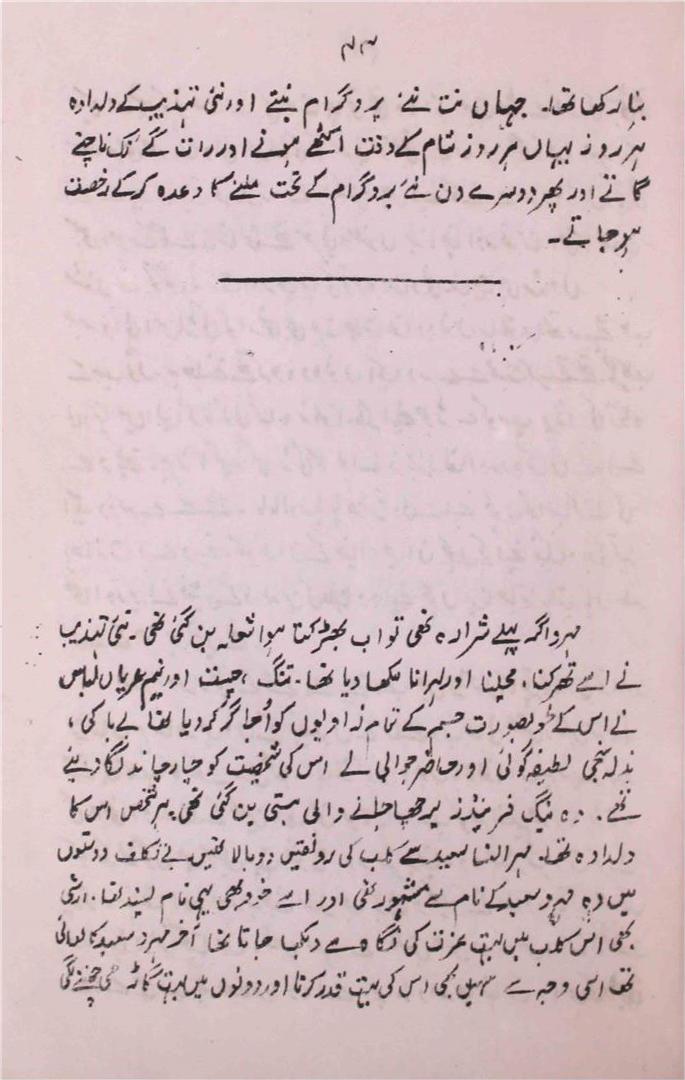 ۴۳
بنا رکھا تھا۔ جہاں نت نئے پروگرام بنتے اور نئی تہذیب کے دلدادہ
ہر روز یہاں ہر روز شام کے وقت اکٹھے ہوتے اور رات گئے تک ناچتے
گاتے اور پھر دوسرے دن نئے پروگرام کے تحت ملنے کا وعدہ کر کے رخصت
ہو جاتے۔
مہرو اگر پہلے شرارہ تھی تو اب بھڑکتا ہوا شعلہ بن گئی تھی۔ نئی تہذیب
نے اسے تھرکنا، مچلنا اور لہرانا سکھا دیا تھا۔ تنگ، چست اور نیم عریاں لباس
نے اس کے خوبصورت جسم کے تمام زاویوں کو اُجاگر کر دیا تھا بے باکی،
بذلہ سنجی لطیفہ گوئی اور حاضر جوابی نے اس کی شخصیت کو چار چاند لگا دیئے
تھے۔ وہ ینگ فرینڈز پر چھا جانے والی ہستی بن گئی تھی ہر شخص اس کا
دلدادہ تھا۔ مہر النسا سعید سے کلب کی رونقیں دوبالا تھیں بے تکلف دوستوں
میں وہ مہرو سعید کے نام سے مشہور تھی اور اسے خود بھی یہی نام پسند تھا۔ ارشی
بھی اس کلب میں بہت عزت کی نگاہ سے دیکھا جاتا تھا آخر مہرو سعید کا بھائی
تھا اسی وجہ سے سہیل بھی اس کی بہت قدر کرتا اور دونوں میں بہت گاڑھی چھننے لگی